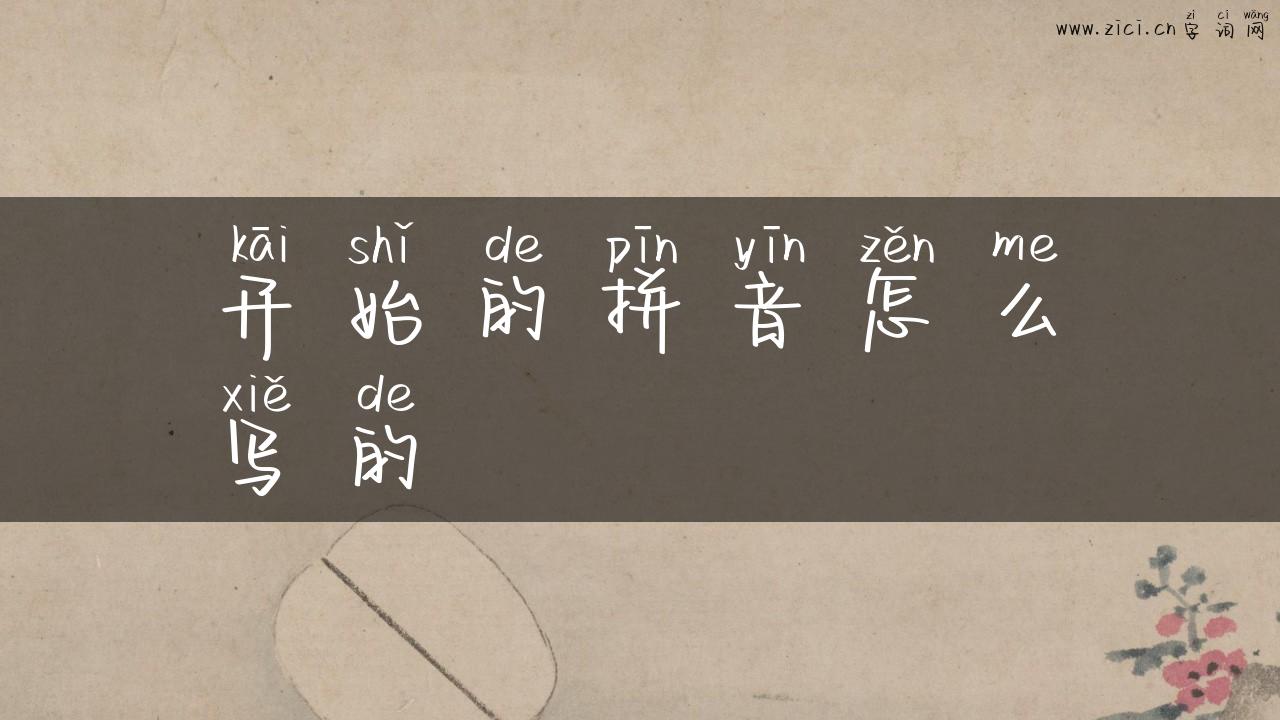 zì cí wǎng
www.zici.cn 字 词 网
kāi shǐ de pīn yīn zěn me
开 始 的 拼 音 怎 么
xiě de
写 的